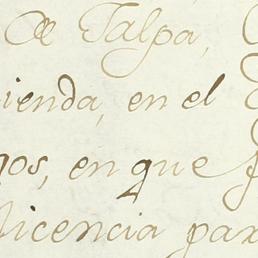 de Talpa,
ienda, en el
nos, en que
licencia par